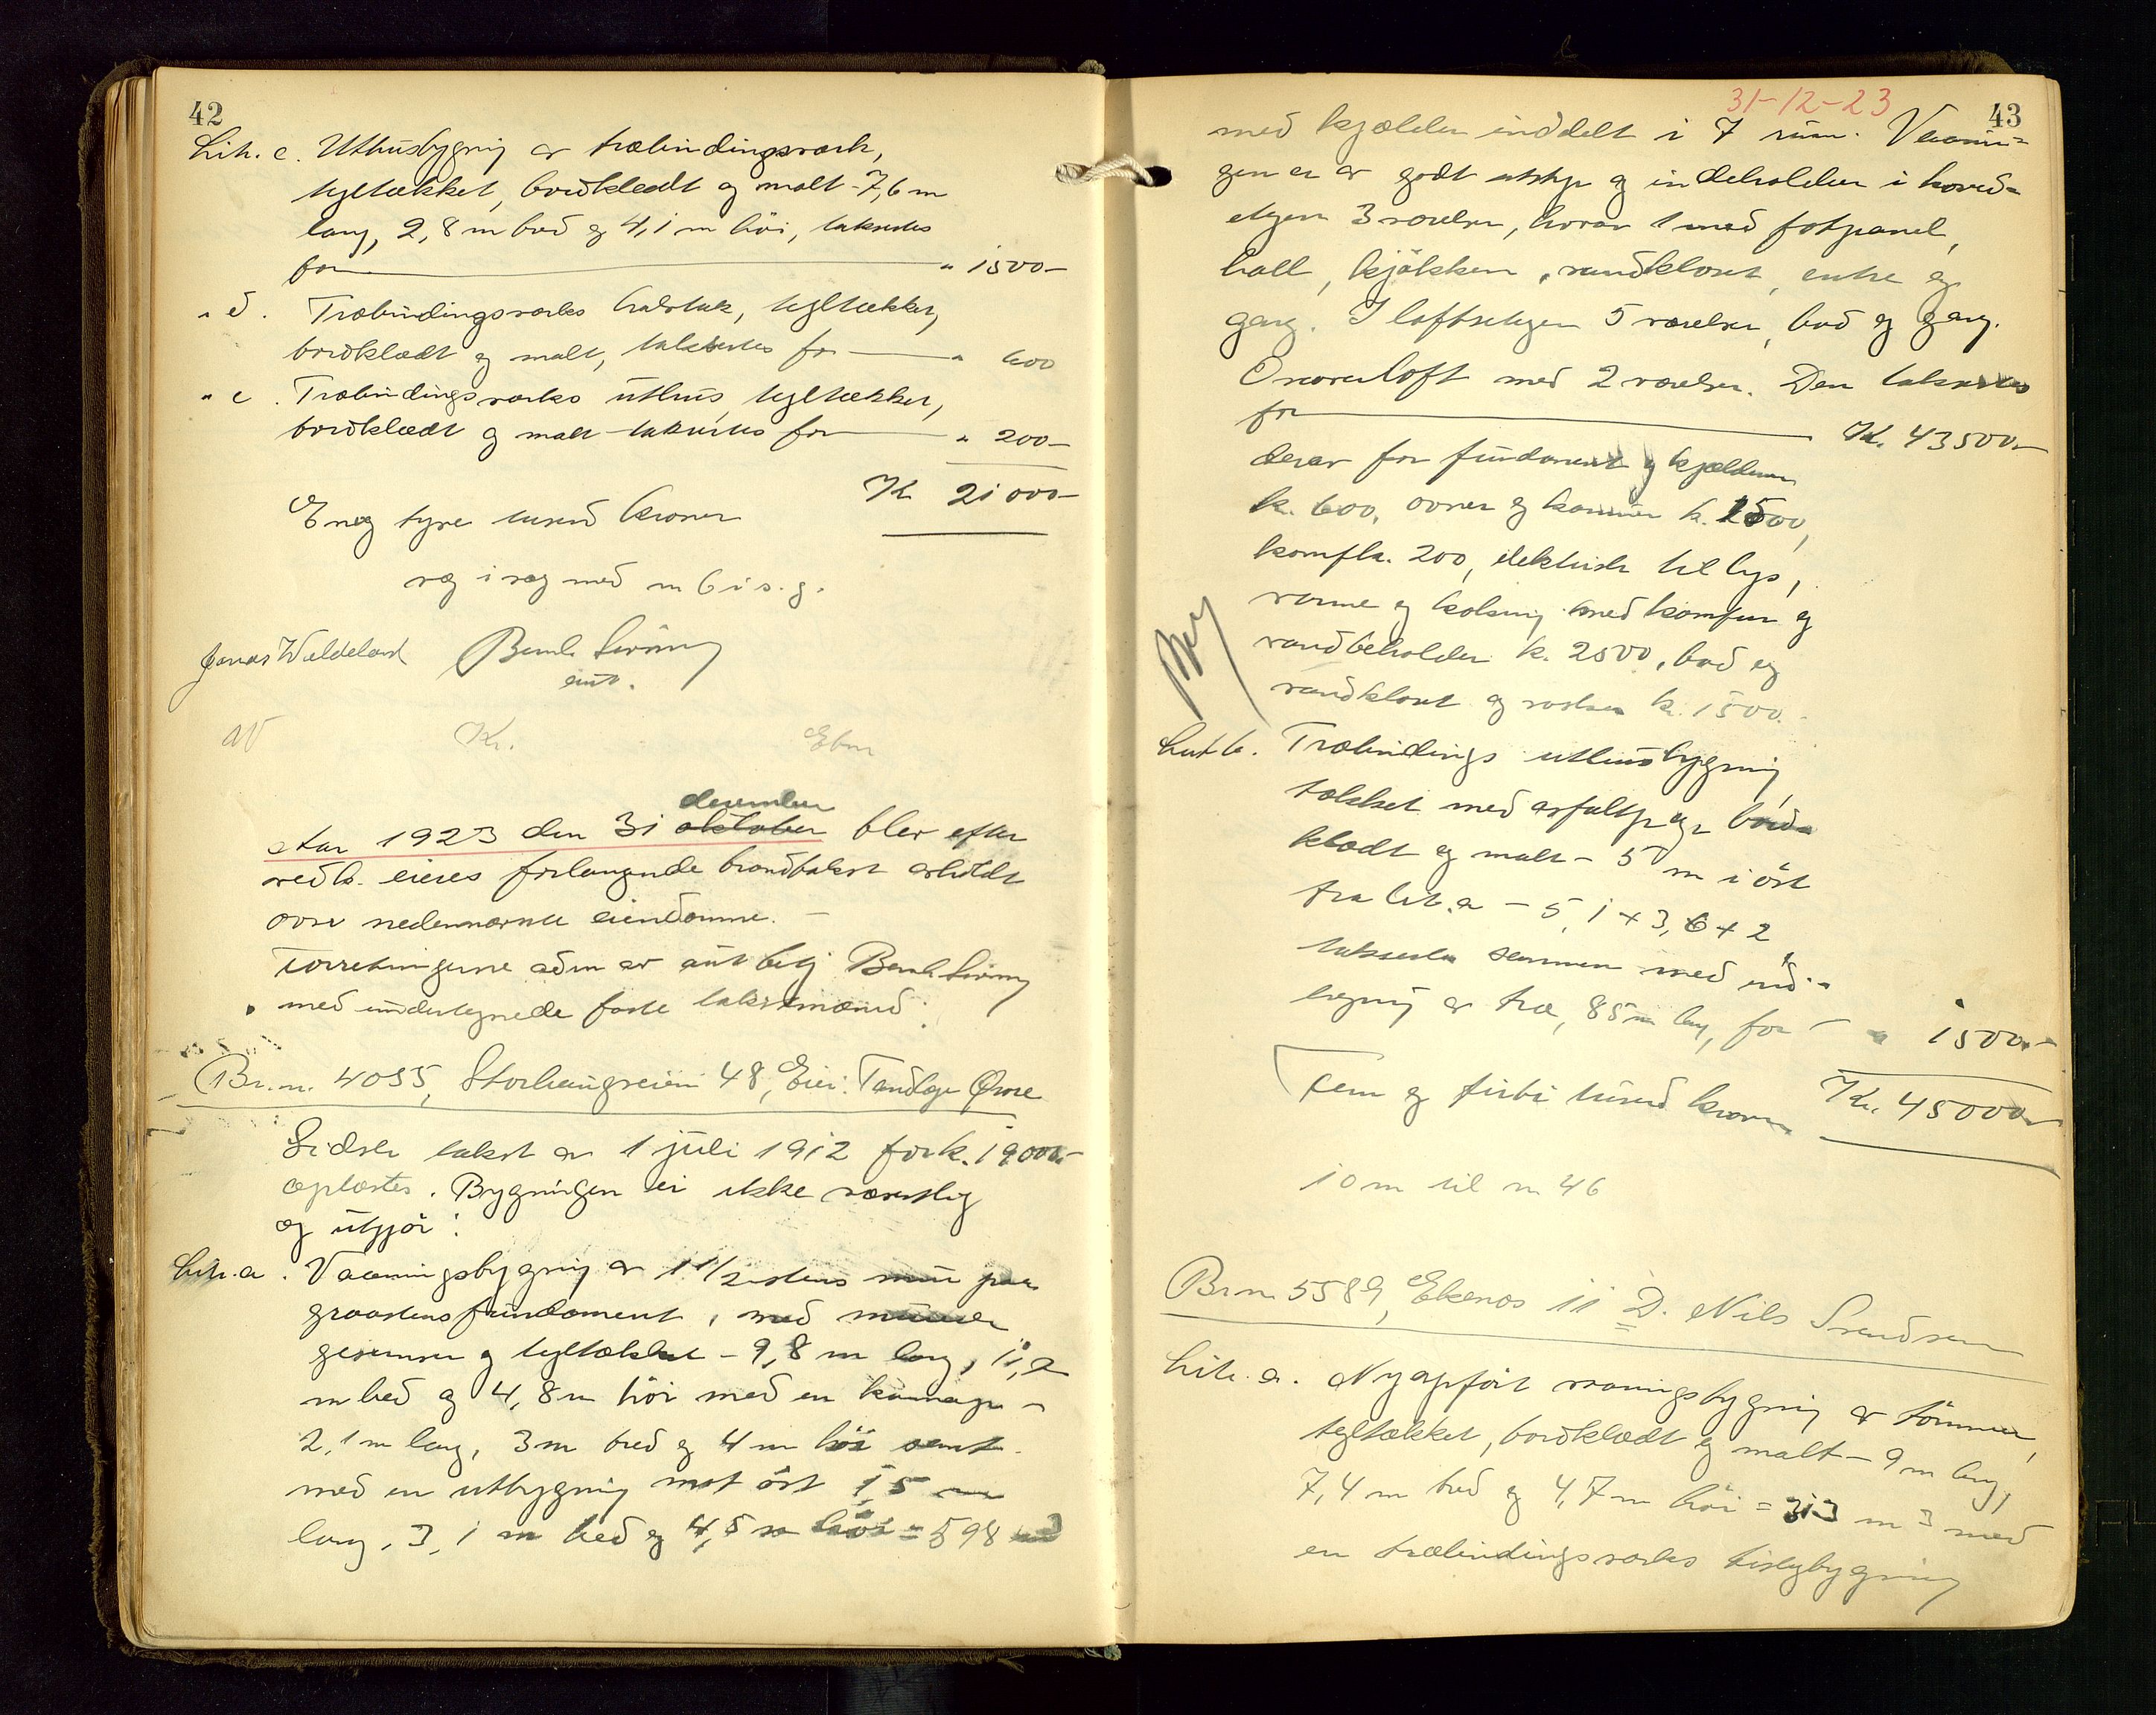 42
Lit. c. Uthusbygning av træbindingsverk,
tegltækket, bordklædt og malt - 7,6 m
lang, 2,8 m bred og 4,1 m höi, takseres
for " 1500 -
" d. Træbindingsverks halvtak, tegltækket,
bordklædt og malt, takseres for " 600
" e. Træbindingsverks uthus, tegltækket,
bordklædt og malt takseres for " 200 -
Kr 21000 -
En og tyve tusend kroner
væg i væg med nr 6 i s. g.
Jonas Wældeland
aut.
W Kr. Ebn
desember
Aar 1923 den 31 oktober blev efter
vedk. eieres forlangende brandtakst avholdt
over nedennævnte eiendomme. -
Forretningerne adm av aut befj
med undertegnede faste takstmænd:
Br. nr. 4055, Storhaugveien 48, Eier: Tandlæge
Sidste takst av 1 juli 1912 for k. 19000 -
oplæstes. Bygningen er ikke værnslig
og utgjör:
Lit. a. Vaaningsbygning av 1 1/2 stens mur paa
graastensfundament, med murede
gesimser og tegltækket - 9,8 m lang, 11,2
m bred og 4,8 m höi med en karnap -
2,1 m lang, 3 m bred og 4 m höi samt
med en utbygning mot öst 1,5 m
lang, 3,1 m bred og 4,5 m höi = 598 m3
31-12-23
43
med kjælder inddelt i 7 rum. Vaanin=
gen er av godt utstyr og indeholder i hoved=
etagen 3 værelser, hvorav 1 med fotpanel,
hall, kjökken, vandkloset, entre og
gang. I loftsetagen 5 værelser, bad og gang.
Överuloft med 2 værelser. Den takseres
for Kr. 43500 -
derav for fundament og kjælderen
k. 600, ovner og kaminer k. 1500,
komfk. 200, elektrisk til lys,
varme og kokning med komfur og
vandbeholder k. 2500, bad og
vandkloset og vasker k. 1500. -
Lit b. Træbindings uthusbygning
tækket med asfaltpap bord=
klædt og malt - 5 m i öst
fra lit. a - 5,1 + 3,6 + 2
takseres sammen med ind=
hegning av træ, 85 m lang, for " 1500 -
Fem og firti tusend kroner Kr. 45000 -
10 m til nr 46
Br nr 5589, Ekenes 11 D. Nils Svendsen
Lit. a. Nyopfört vaaningsbygning av tömmer,
tegltækket, bordklædt og malt - 9 m lang,
7,4 m bred og 4,7 m höi = 313 m 3 med
en træbindingsverks bislagbygning